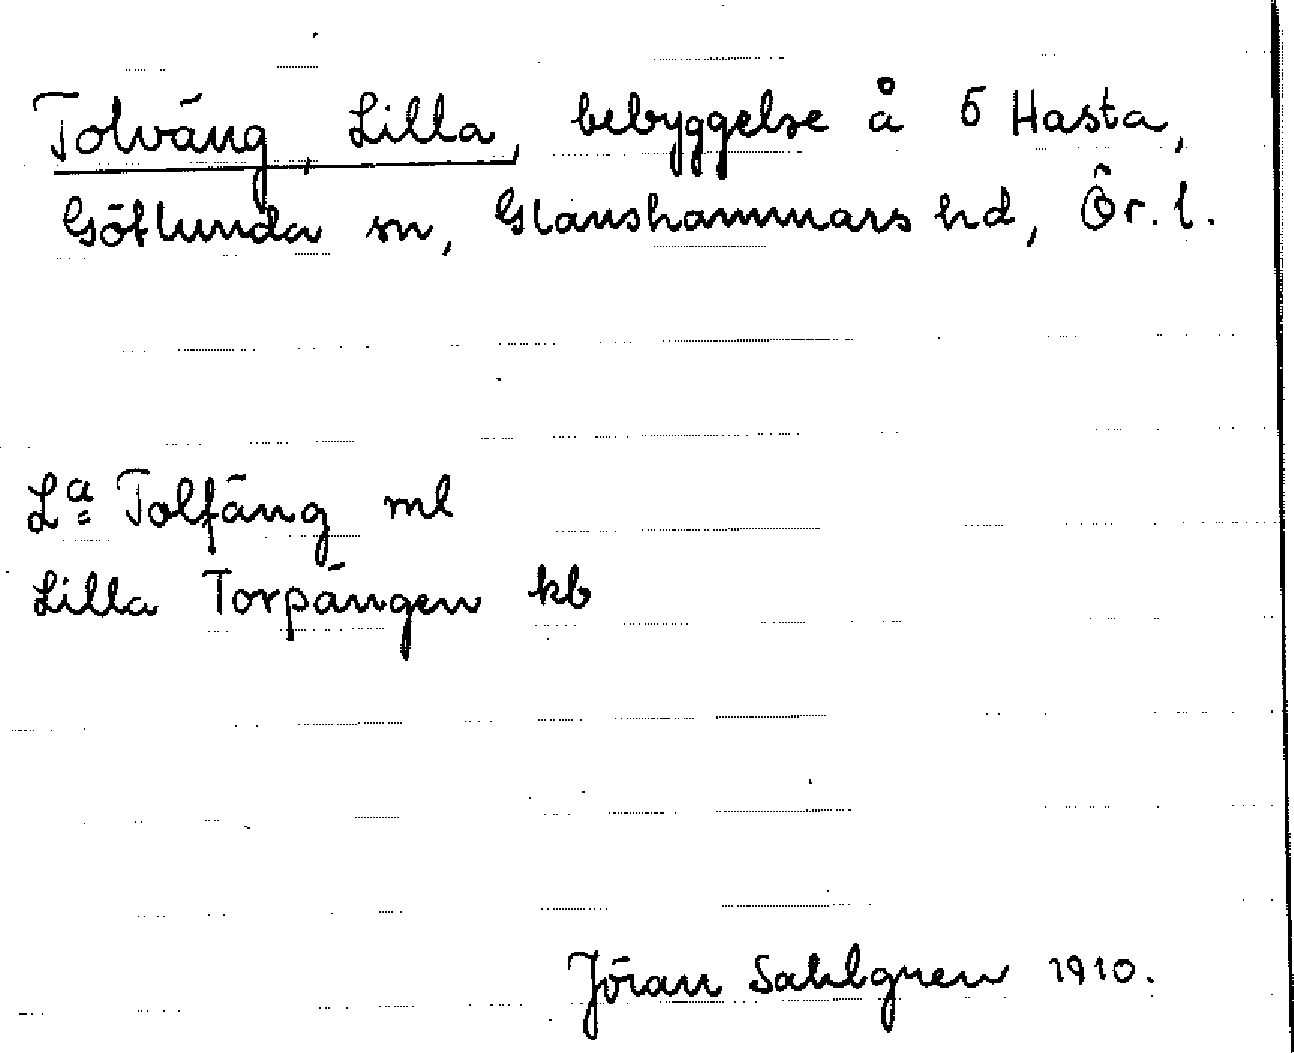 Tolväng, Lilla, bebyggelse å 6 Hasta,
Götlunda sn, Glanshammars hd, Ör. l.
La Tolfäng ml
Lilla Torpängen kb
Jöran Sahlgren 1910.